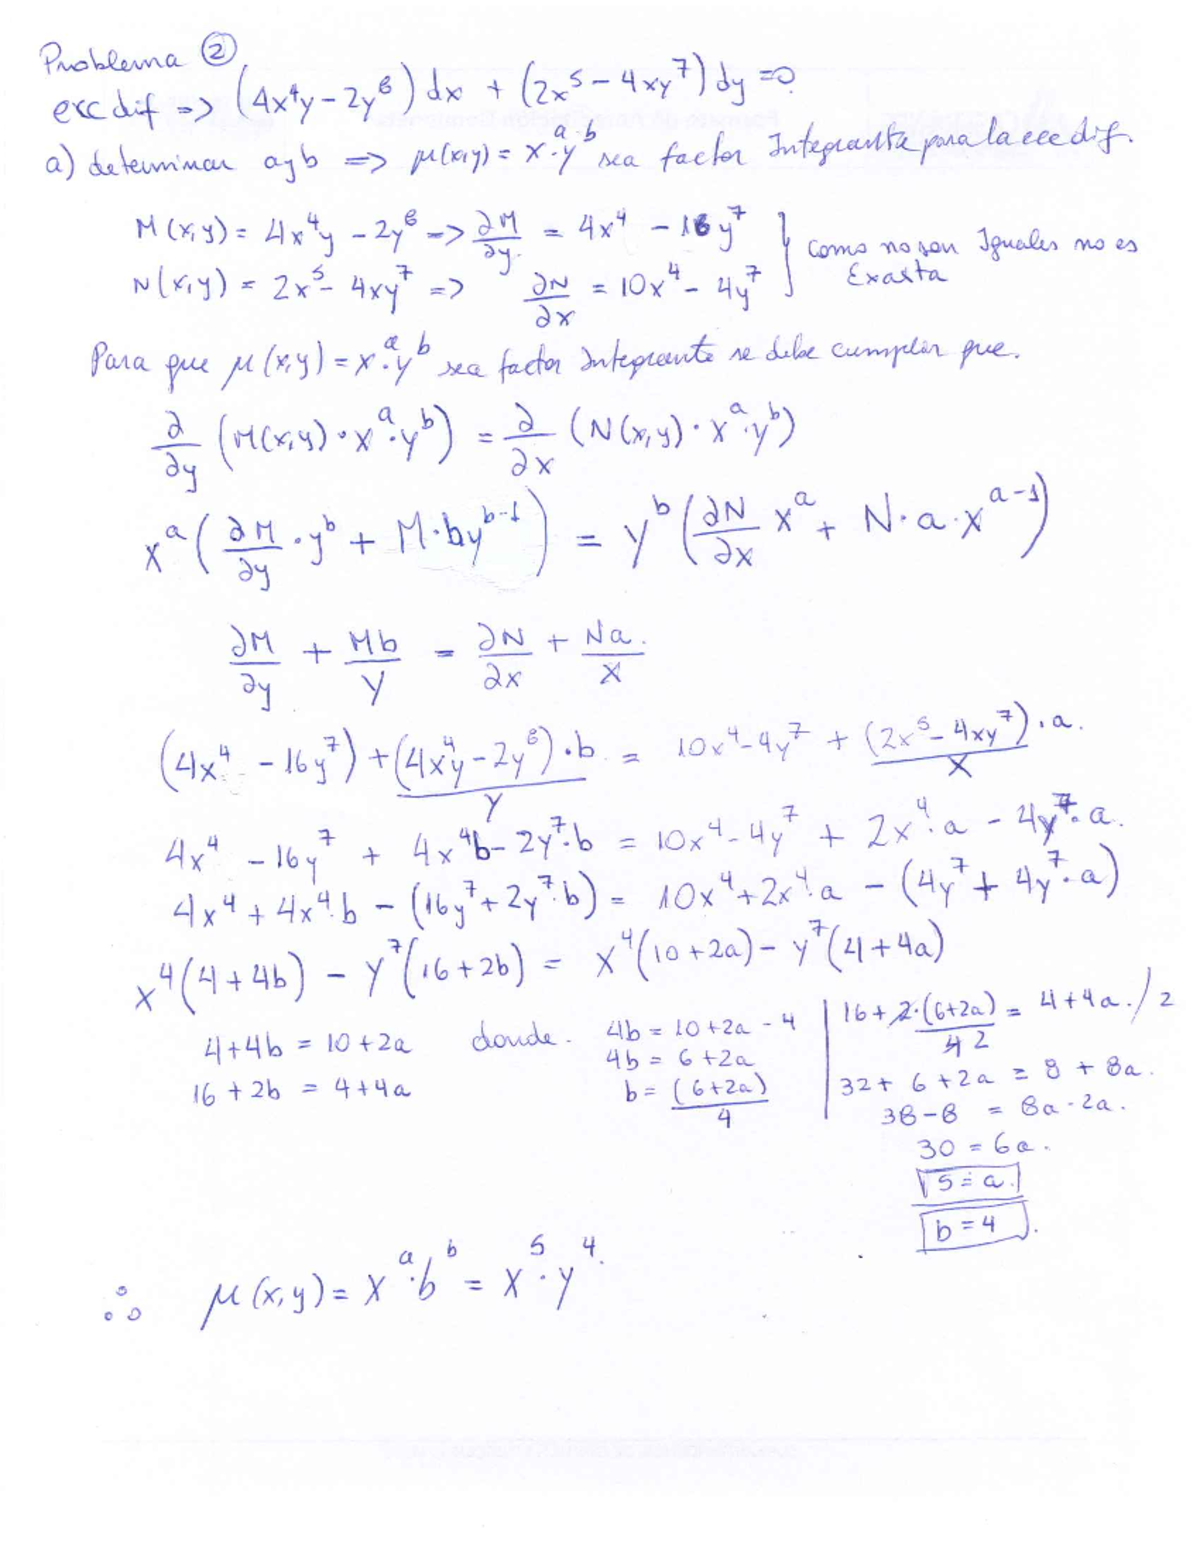 Problema ②
ecc dif => (4x⁴y - 2y⁸) dx + (2x⁵ - 4xy⁷) dy = 0
a) determinar a y b => μ(x,y) = x^a · y^b sea factor Integrante para la ecc dif.
M(x,y) = 4x⁴y - 2y⁸ => ∂M/∂y = 4x⁴ - 16y⁷ } como no son Iguales no es
N(x,y) = 2x⁵ - 4xy⁷ => ∂N/∂x = 10x⁴ - 4y⁷ } Exacta
Para que μ(x,y) = x^a · y^b sea factor Integrante se debe cumplir que.
∂/∂y (M(x,y) · x^a · y^b) = ∂/∂x (N(x,y) · x^a · y^b)
x^a (∂M/∂y · y^b + M · by^(b-1)) = y^b (∂N/∂x x^a + N · a · x^(a-1))
∂M/∂y + Mb/y = ∂N/∂x + Na/x.
(4x⁴ - 16y⁷) + (4x⁴y - 2y⁸) · b / y = 10x⁴ - 4y⁷ + (2x⁵ - 4xy⁷) · a. / x
4x⁴ - 16y⁷ + 4x⁴b - 2y⁷·b = 10x⁴ - 4y⁷ + 2x⁴·a - 4y⁷·a.
4x⁴ + 4x⁴·b - (16y⁷ + 2y⁷·b) = 10x⁴ + 2x⁴·a - (4y⁷ + 4y⁷·a)
x⁴(4 + 4b) - y⁷(16 + 2b) = x⁴(10 + 2a) - y⁷(4 + 4a)
4 + 4b = 10 + 2a donde.
16 + 2b = 4 + 4a
4b = 10 + 2a - 4
4b = 6 + 2a
b = (6+2a)/4
16 + 2·(6+2a)/4 2 = 4 + 4a. / 2
32 + 6 + 2a = 8 + 8a.
38 - 8 = 8a - 2a.
30 = 6a.
5 = a.
b = 4.
∴ μ(x,y) = x^a · b^b = x⁵ · y⁴.